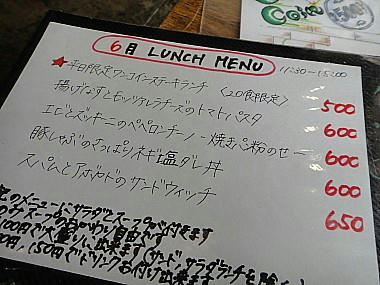 6月 LUNCH MENU 11:30-15:00
★平日限定ワンコインステーキランチ 〈20食限定〉 500
揚げなすとモッツァレラチーズのトマトパスタ 600
エビとズッキーニのペペロンチーノ -焼きパン粉のせ- 600
豚しゃぶのさっぱりネギ塩ダレ丼 600
スパムとアボカドのサンドウィッチ 650
メニューにサラダとスープが付きます
スープのおかわり自由です
100円で大盛りに出来ます(サンド、サラダランチを除く)
150円でドリンクお付け出来ます